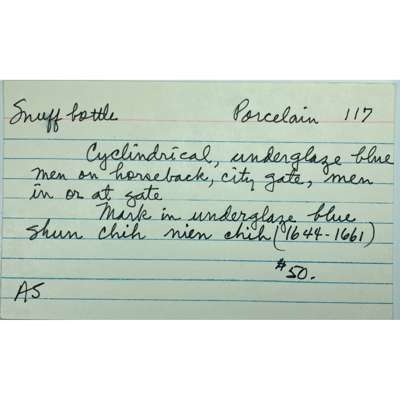 Snuff bottle Porcelain 117
Cyclindrical, underglaze blue
men on horseback, city gate, men
in or at gate
Mark in underglaze blue
Shun chih nien chih (1644-1661)
$50.
AS